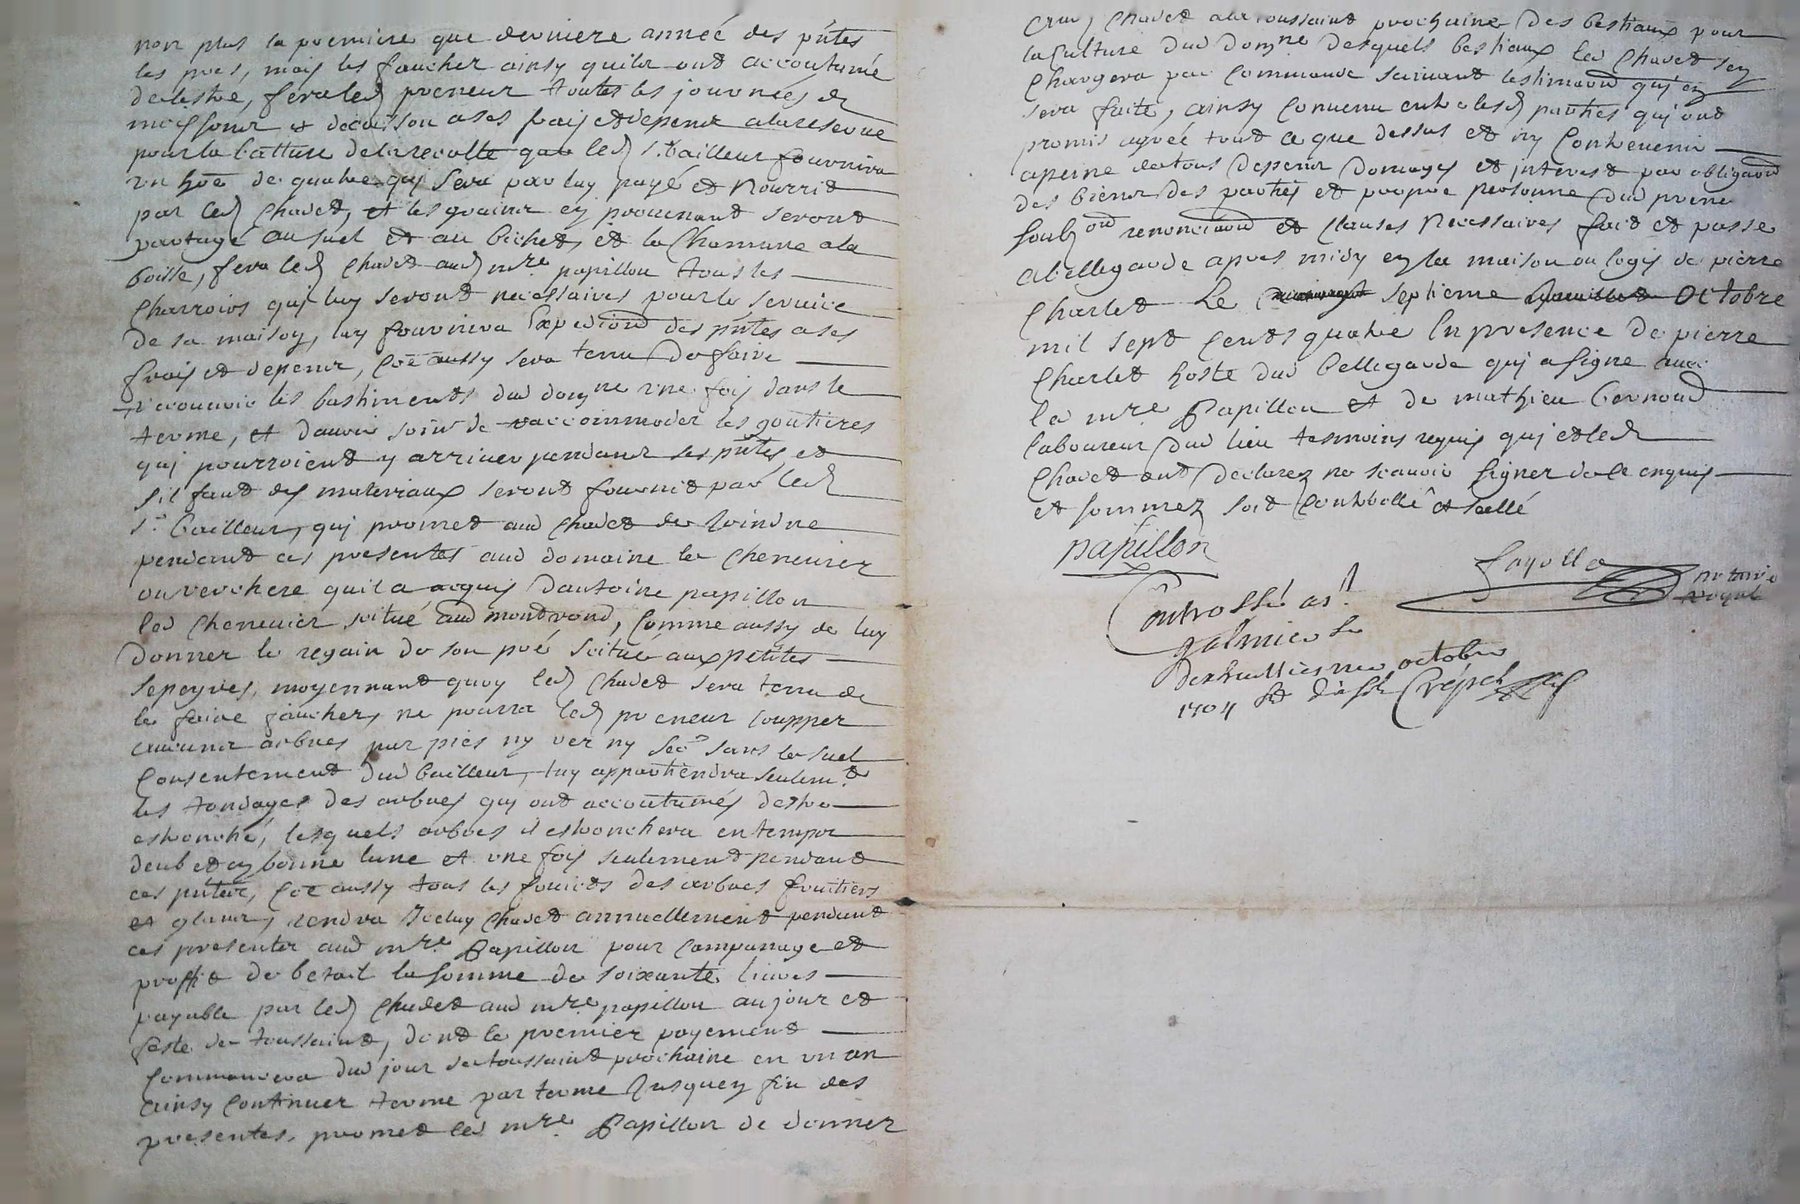 non plus la premiere que derniere année des pntes
les pres, mais les faucher ainsy quils ont accoutumé
destre, fera led preneur toutes les journées de
moissons et a ses frais et depens a la reserve
pour la batture de la recolte que led sr bailleur fournira
un hoe de quatre qui sera par luy payé et nourrit
par led Chavet, et les grains en provenant seront
partagé au suel et au bichet, et la Chenevue a la
boisse, fera led Chavet aud mre papillon tous les
charrois qui luy seront necessaires pour le service
de sa maison, luy fournira Expedition des pntes a ses
frais et depens, coe aussy sera tenu de faire
recouvrir les bastiments dud domne une fois dans le
terme, et davoir soins de raccommoder les goutieres
qui pourroient y arriver pendant les pntes et
sil faut des materiaux seront fournit par led
sr bailleur, qui promet aud Chavet de Joindre
pendant ces presentes aud domaine le chenevier
ou verchere quil a acquis dantoine papillon
led chenevier scitué aud montrond, Comme aussy de luy
donner le regain de son pré scitué aux petites
sepeyres, moyennant quoy led Chavet sera tenu de
le faire faucher, ne pourra led preneur coupper
aucuns arbres par pies ny ver ny sec sans le suel
Consentement dud bailleur, luy appartiendra seulemt
les tondages des arbres qui ont accoutumés destre
estronché, lesquels arbres il estronchera en temps
deub et en bonne lune et une fois seulement pendant
ces pntes, coe aussy tous les fruicts des arbres fruitiers
et glans, rendra Iceluy Chavet annuellement pendant
ces presentes aud mre Papillon pour Campanage et
proffit de betail la somme de soixante livres
payable par led Chavet aud mre papillon au jour et
feste de toussaint, dont le premier payement
commancera du jour de toussaint prochaine en un an
ainsy Continuer terme par terme Jusquen fin des
presentes, promet led mre Papillon de donner
aud Chavet a la toussaint prochaine des bestiaux pour
la culture dud domne desquels bestiaux led Chavet sen
chargera par Commande suivant lestimaon qui en
sera faite, ainsy Convenu entre lesd parties qui ont
promis agréé tout ce que dessus et ny Contrevenir
a peine de tous depens domages et interest par obligaon
des biens des parties et propre personne dud prene
soubzon renonciaon et clauses Necessaires fait et passé
a bellegarde apres midy en la maison ou logis de pierre
Charlet Le septieme Octobre
mil sept cents quatre En presence de pierre
Charlet hoste dud bellegarde qui a signé avec
le mre Papillon et de mathieu bernond
laboureur dud lieu tesmoins requis qui et led
Chavet ont declarez ne scavoir signer de ce enquis
et sommez soit Controllé et scellé
papillon
fayolle notaire royal
Controllé a st
galmier le
dixhuitiesme octobre
1704